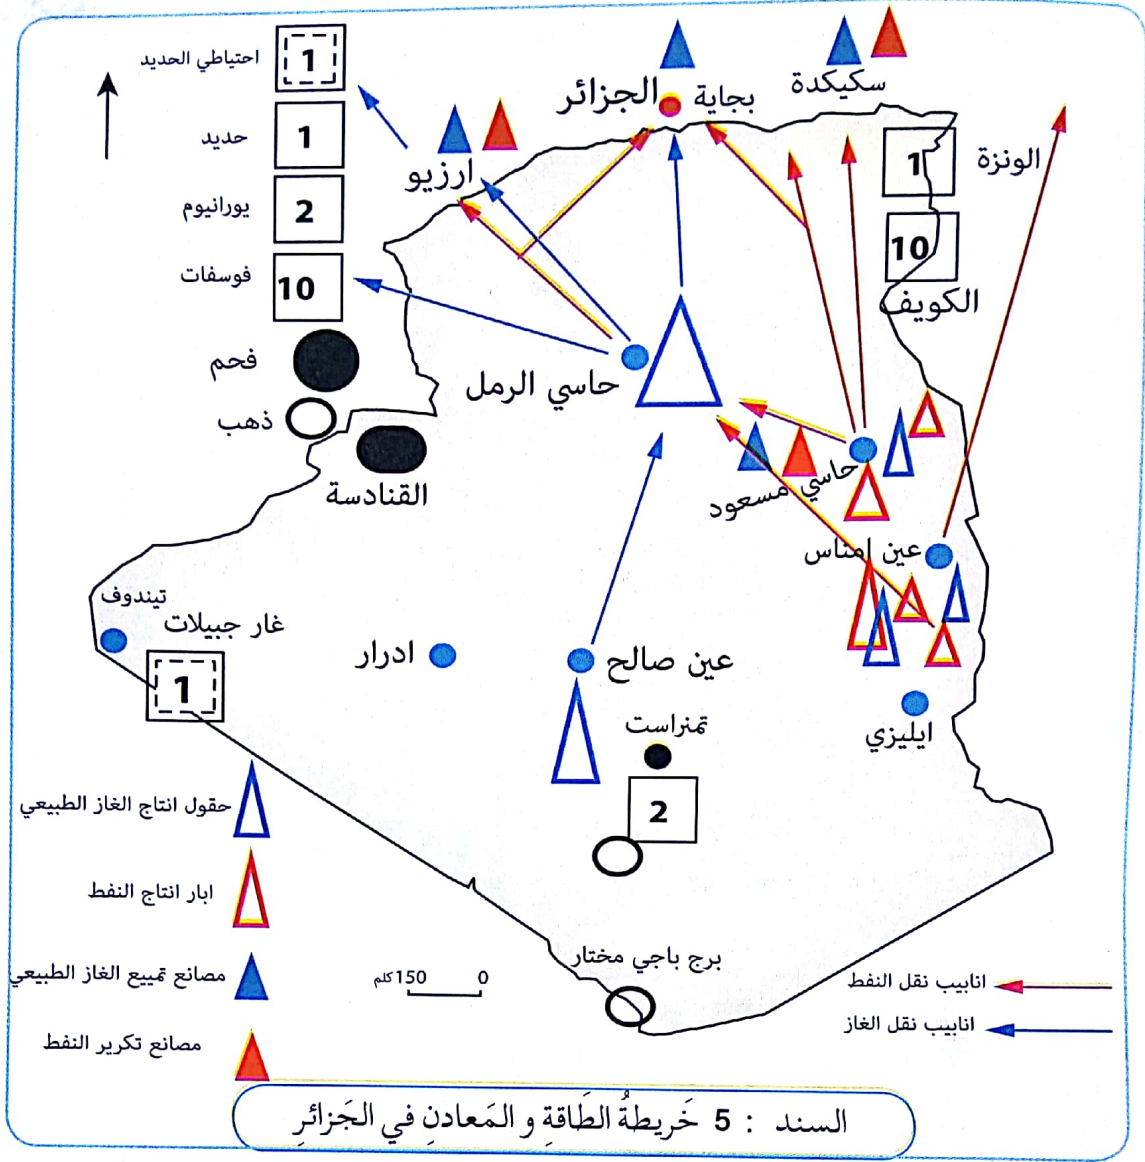 احتياطي الحديد
1
حديد
1
يورانيوم
2
فوسفات
10
فحم
ذهب
الجزائر
بجاية
سكيكدة
ارزيو
1
الونزة
10
الكويف
حاسي الرمل
حاسي مسعود
القنادسة
عين امناس
تيندوف
غار جبيلات
1
ادرار
عين صالح
تمنراست
2
ايليزي
برج باجي مختار
حقول انتاج الغاز الطبيعي
ابار انتاج النفط
مصانع تمييع الغاز الطبيعي
مصانع تكرير النفط
0 150 كلم
انابيب نقل النفط
انابيب نقل الغاز
السند : 5 خَريطةُ الطَاقةِ و المَعادنِ في الجَزائرِ